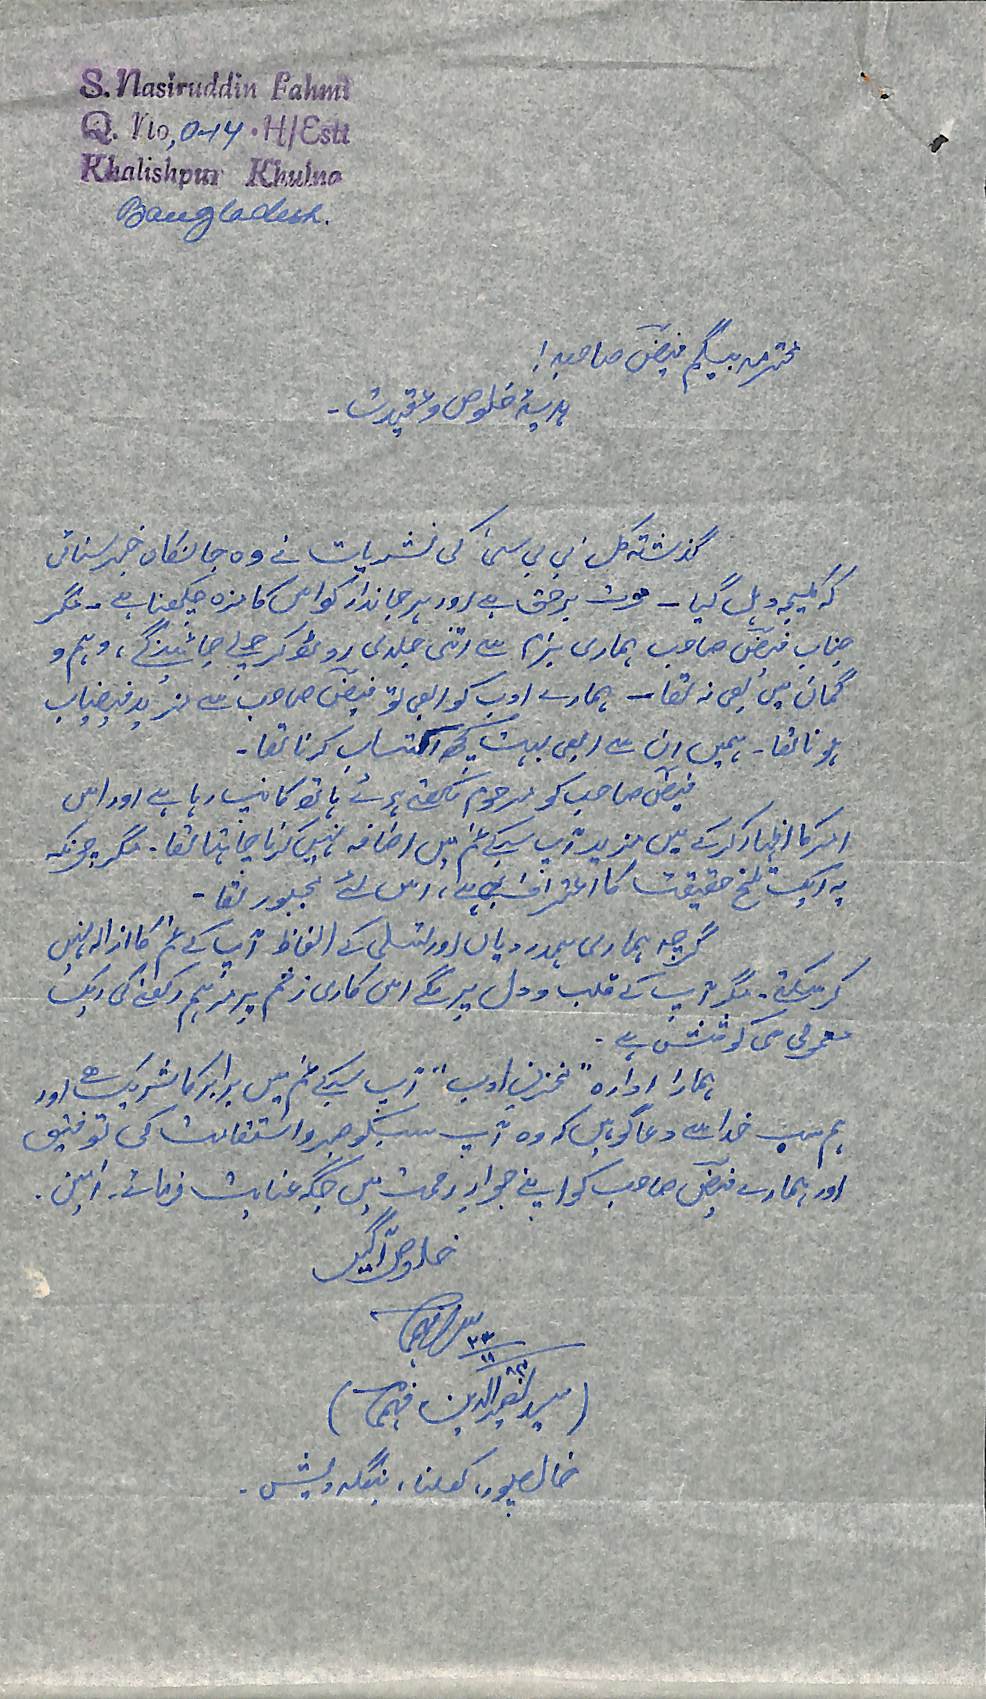 S. Nasiruddin Fahmi
Q. No, 0-14 · H/Estt
Khalishpur Khulna
Bangladesh.
محترمہ بیگم فیضؔ صاحبہ!
ہدیۂ خلوص و عقیدت ۔
گذشتہ کل 'بی بی سی' کی نشریات نے وہ جانکاہ خبر سنائی
کہ کلیجہ دہل گیا ۔ موت برحق ہے اور ہر جاندار کو اس کا مزہ چکھنا ہے ۔ مگر
جناب فیضؔ صاحب ہماری بزم سے اتنی جلدی روٹھ کر چلے جائینگے، وہم و
گمان میں بھی نہ تھا ۔ ہمارے ادب کو ابھی تو فیضؔ صاحب سے مزید فیضیاب
ہونا تھا ۔ ہمیں ان سے ابھی بہت کچھ اکتساب کرنا تھا ۔
فیضؔ صاحب کو مرحوم لکھتے ہوئے ہاتھ کانپ رہا ہے اور اس
امر کا اظہار کرکے میں مزید آپ سبکے غم میں اضافہ نہیں کرنا چاہتا تھا ۔ مگر چونکہ
یہ ایک تلخ حقیقت کا اعتراف بھی ہے، اس لئے مجبور تھا ۔
گرچہ ہماری ہمدردیاں اور تسلی کے الفاظ آپ کے غم کا ازالہ نہیں
کر سکتے ۔ مگر آپ کے قلب و دل پر لگے اس کاری زخم پر مرہم رکھنے کی ایک
معمولی سی کوشش ہے ۔
ہمارا ادارہ "مخزنِ ادب" آپ سبکے غم میں برابر کا شریک ہے اور
ہم سب خدا سے دعا گو ہیں کہ وہ آپ سبکو صبر و استقامت کی توفیق
اور ہمارے فیضؔ صاحب کو اپنے جوارِ رحمت میں جگہ عنایت فرمائے ۔ آمین ۔
خلوص آگیں
۲۳
۱۱
(سید نصیرالدین فہمی)
خالصپور، کھلنا، بنگلہ دیش ۔